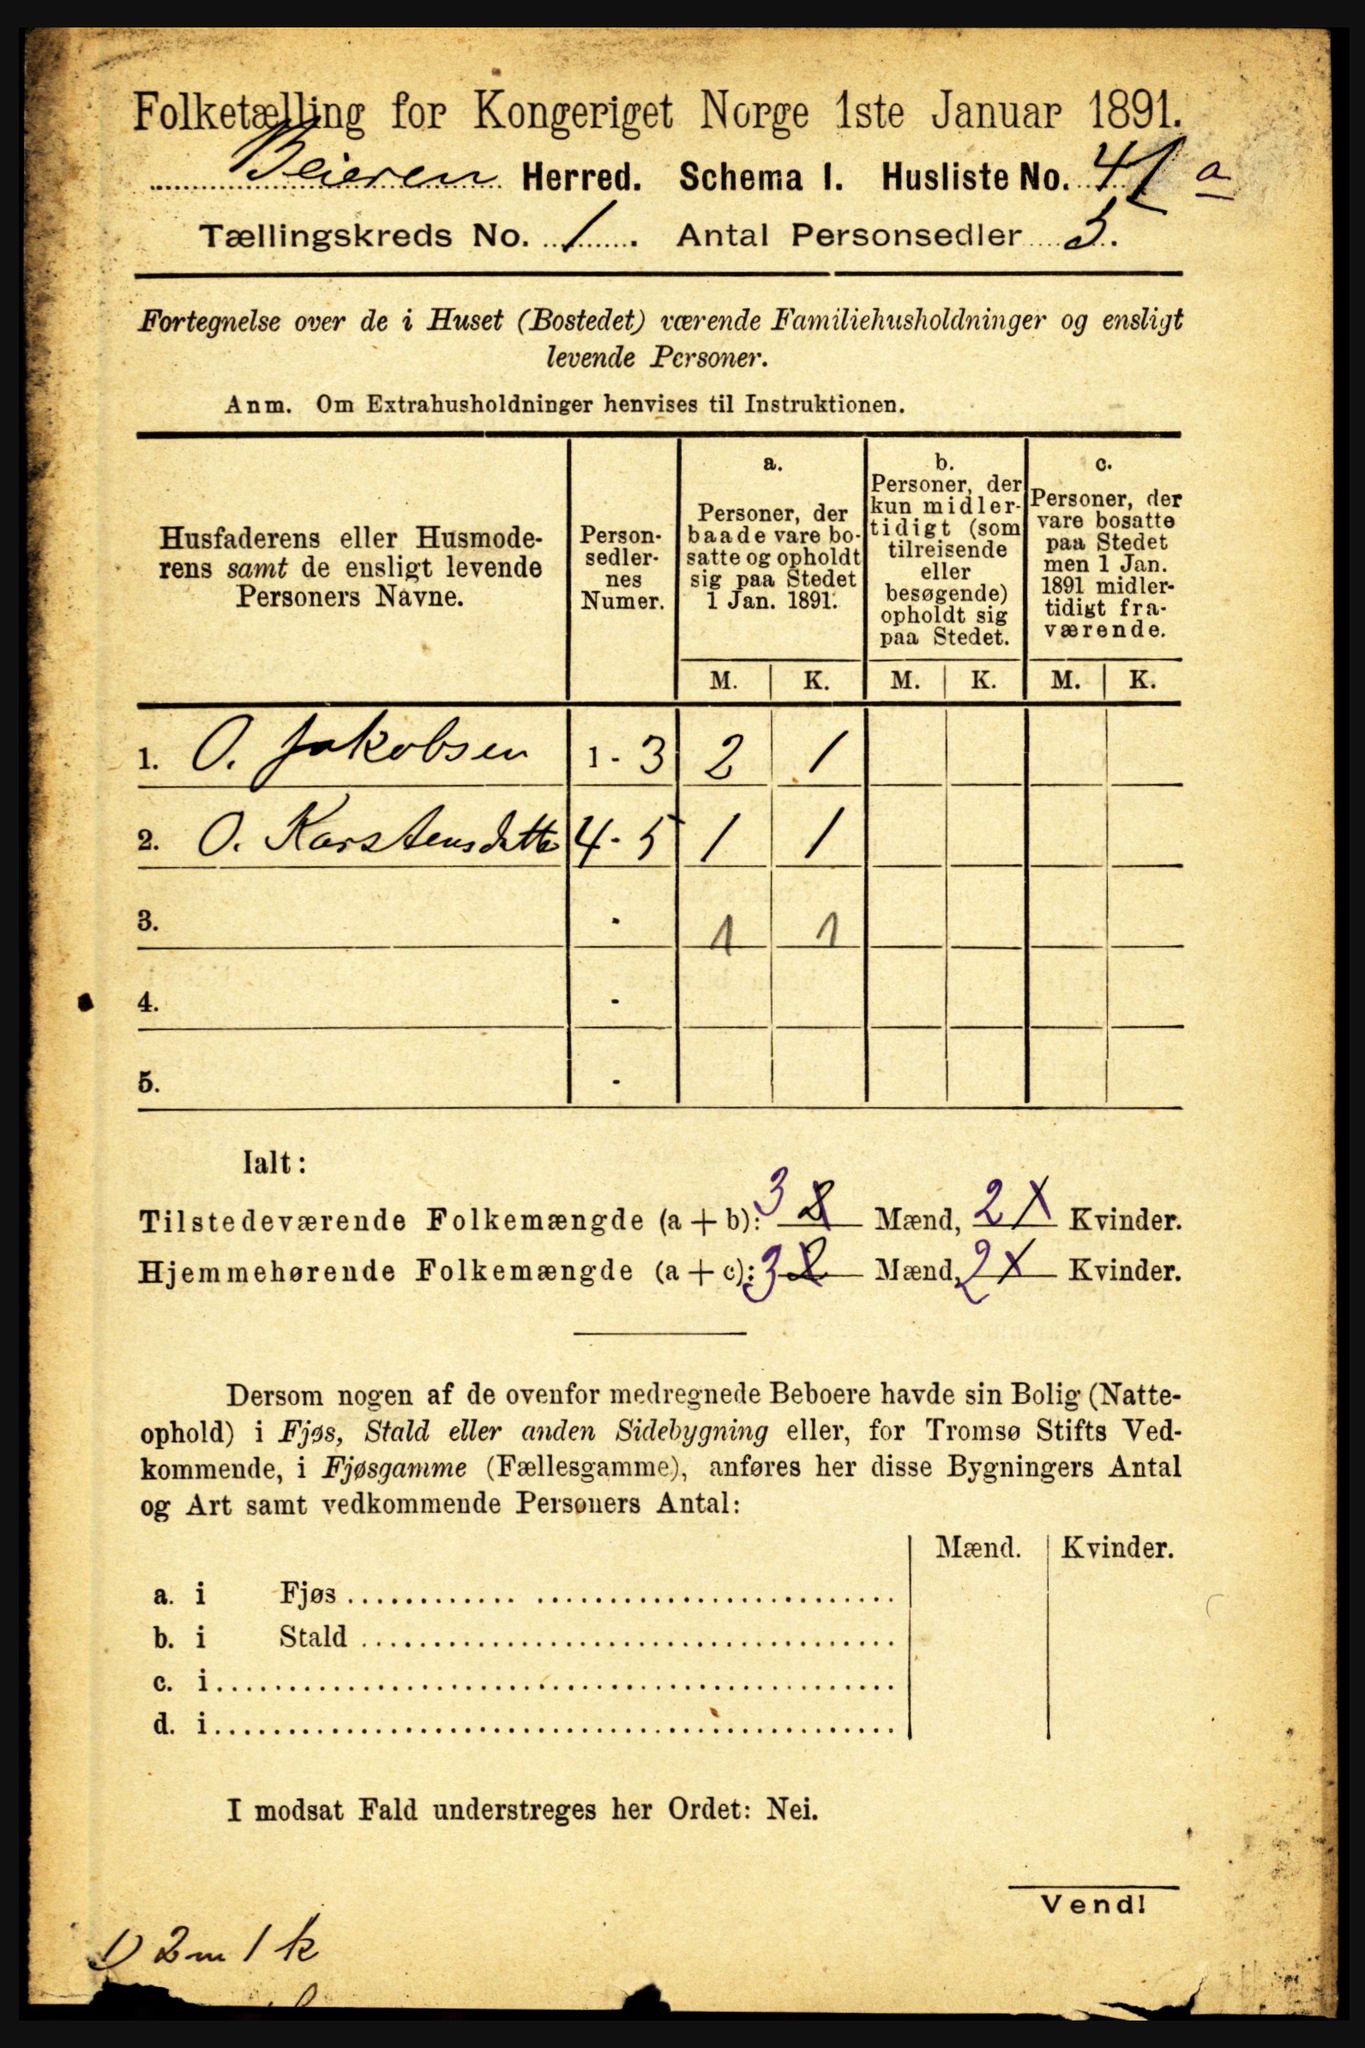 Folketælling for Kongeriget Norge 1ste Januar 1891.
Beieren Herred. Schema I. Husliste No. 41 a
Tællingskreds No. 1. Antal Personsedler 5.
Fortegnelse over de i Huset (Bostedet) værende Familiehusholdninger og ensligt
levende Personer.
Anm. Om Extrahusholdninger henvises til Instruktionen.
Husfaderens eller Husmode-
rens samt de ensligt levende
Personers Navne.
Person-
sedler-
nes
Numer.
a.
Personer, der
baade vare bo-
satte og opholdt
sig paa Stedet
1 Jan. 1891.
b.
Personer, der
kun midler-
tidigt (som
tilreisende
eller
besøgende)
opholdt sig
paa Stedet.
c.
Personer, der
vare bosatte
paa Stedet
men 1 Jan.
1891 midler-
tidigt fra-
værende.
M. K. M. K. M. K.
1. O. Jakobsen 1 - 3 2 1
2. O. Karstensdatte 4 - 5 1 1
3. - 1 1
4. -
5. -
Ialt:
Tilstedeværende Folkemængde (a + b): 3 2 Mænd, 2 1 Kvinder.
Hjemmehørende Folkemængde (a + c): 3 2 Mænd, 2 1 Kvinder.
Dersom nogen af de ovenfor medregnede Beboere havde sin Bolig (Natte-
ophold) i Fjøs, Stald eller anden Sidebygning eller, for Tromsø Stifts Ved-
kommende, i Fjøsgamme (Fællesgamme), anføres her disse Bygningers Antal
og Art samt vedkommende Personers Antal:
Mænd. Kvinder.
a. i Fjøs
b. i Stald
c. i
d. i
I modsat Fald understreges her Ordet: Nei.
Vend!
1) 2 m 1 k